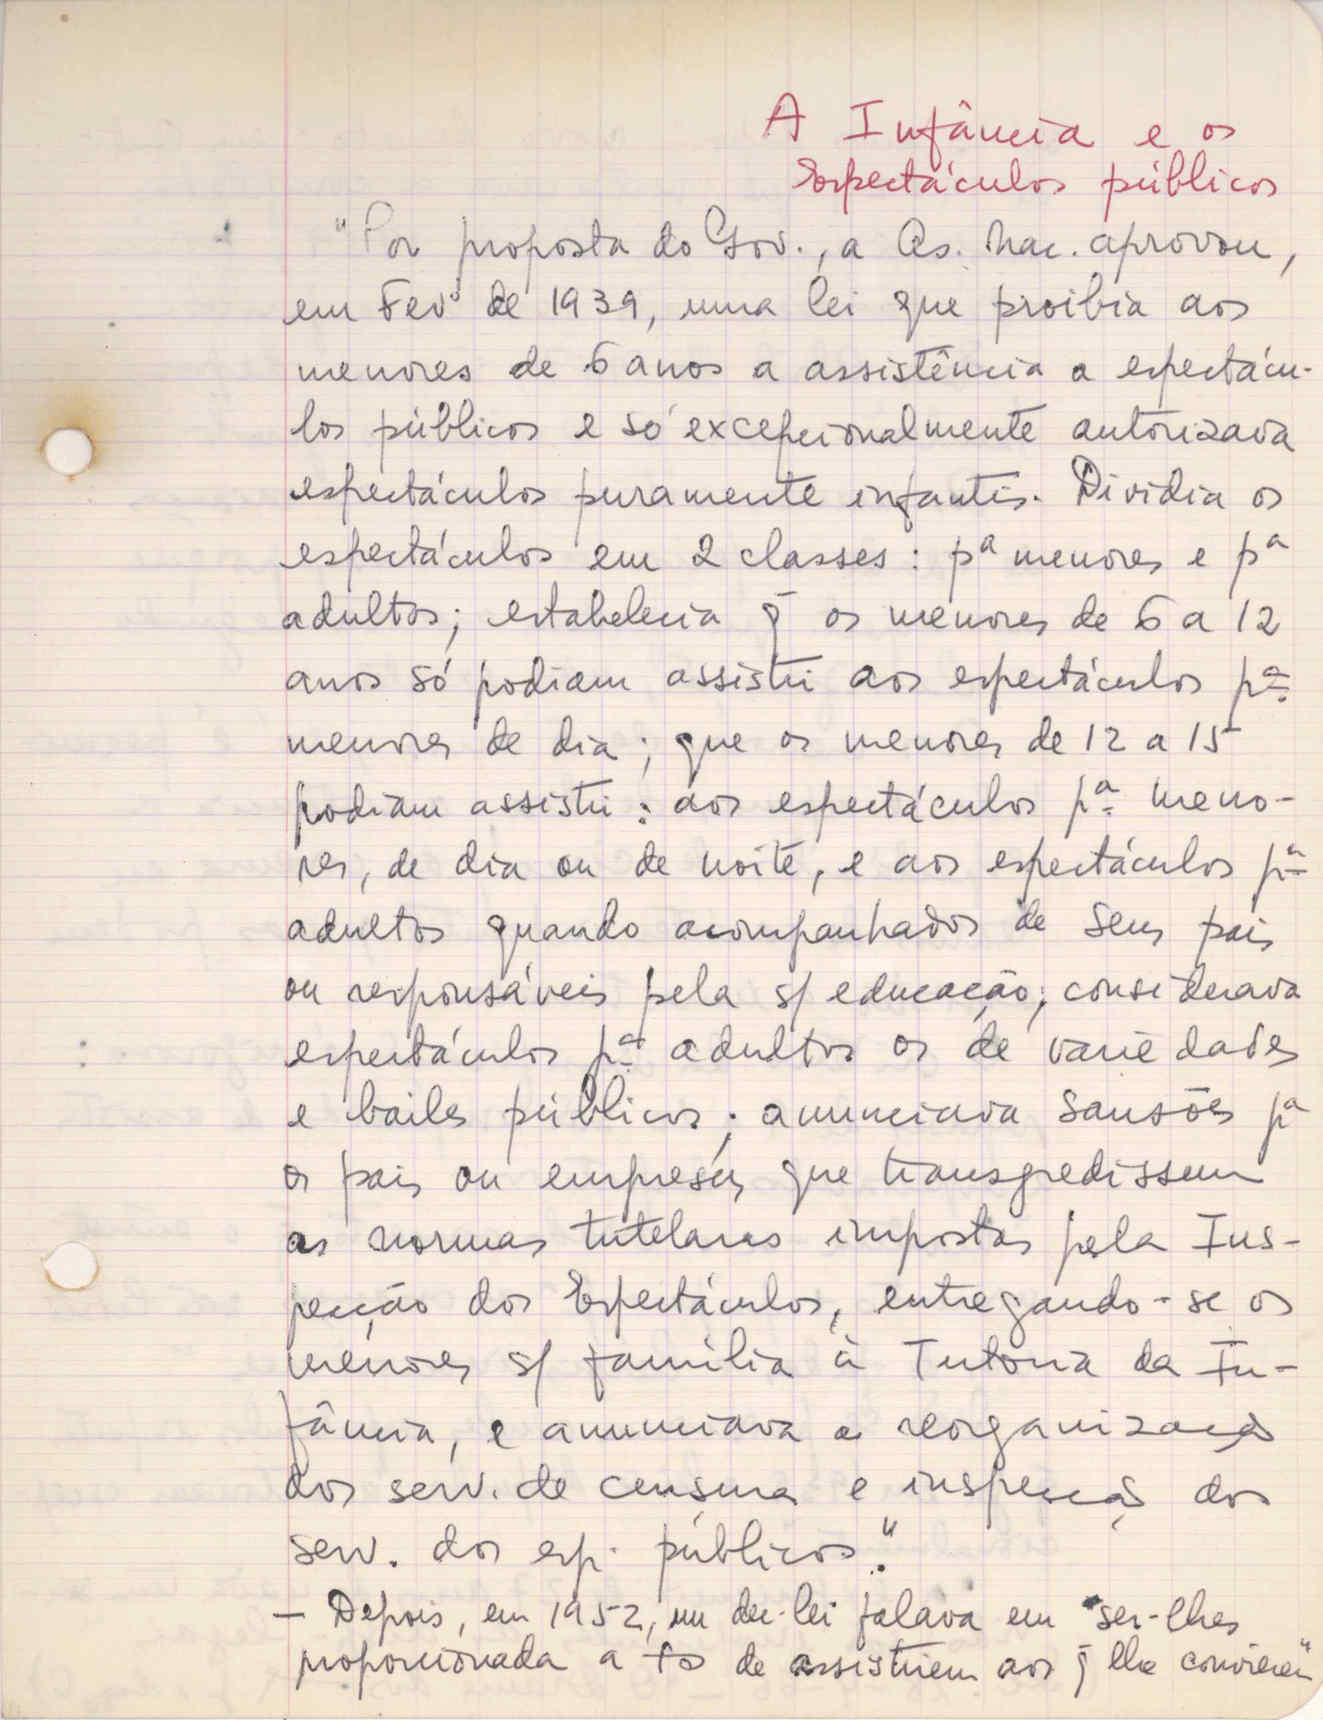 A Infância e os
Espectáculos públicos
"Por proposta do Gov., a As. Nac. aprovou,
em Fevº de 1939, uma lei que proibia aos
menores de 6 anos a assistência a espectácu-
los públicos e só excepcionalmente autorizava
espectáculos puramente infantis. Dividia os
espectáculos em 2 classes: pª menores e pª
adultos; estabelecia q̄ os menores de 6 a 12
anos só podiam assistir aos espectáculos pª
menores de dia; que os menores de 12 a 15
podiam assistir: aos espectáculos pª meno-
res, de dia ou de noite, e aos espectáculos pª
adultos quando acompanhados de seus pais
ou responsáveis pela s/ educação; considerava
espectáculos pª adultos os de variedades
e bailes públicos; anunciava sansões pª
os pais ou empresas que transgredissem
as normas tutelares impostas pela Ins-
pecção dos Espectáculos, entregando-se os
menores s/ família à Tutoria da In-
fância, e anunciava a reorganização
dos serv. de censura e inspecção dos
serv. dos esp. públicos."
— Depois, em 1952, um dec-lei falava em "ser-lhes
proporcionada a de assistirem aos q̄ lhe convierem"